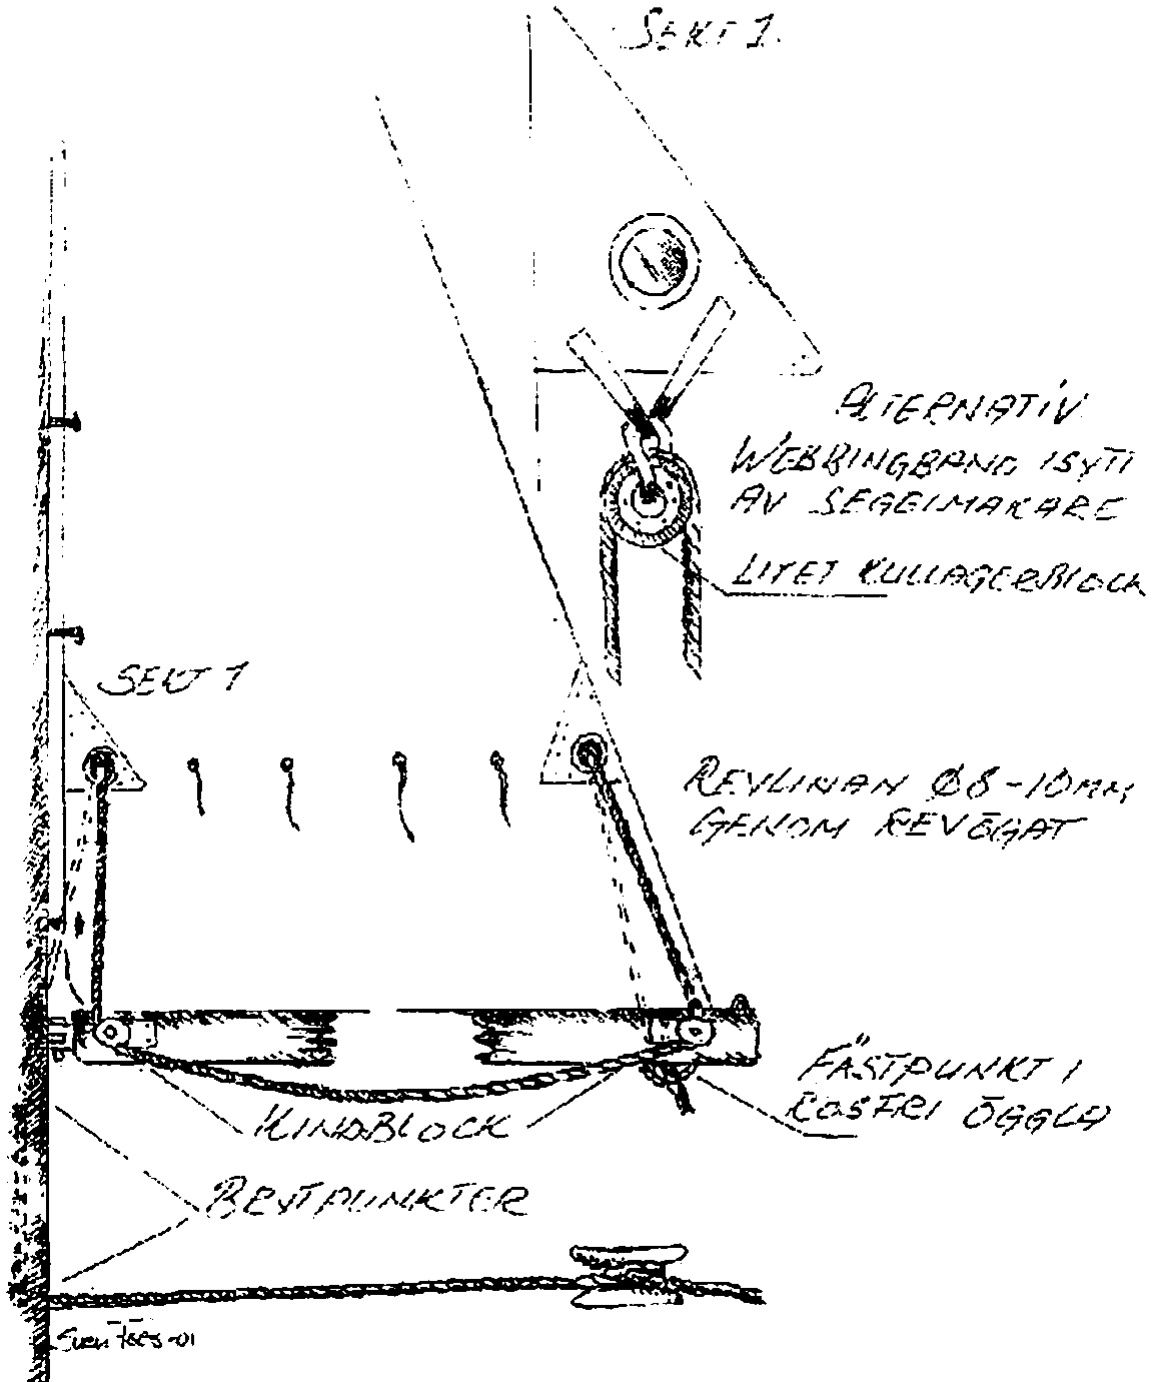 SEKT 1.
ALTERNATIV
WEBBINGBAND ISYTT
AV SEGELMAKARE
LITET KULLAGERBLOCK
SEKT 1
REVLINAN Ø8-10MM
GENOM REVÖGAT
FÄSTPUNKT I
ROSFRI ÖGGLA
KINDBLOCK
BEYTPUNKTER
Sven -01